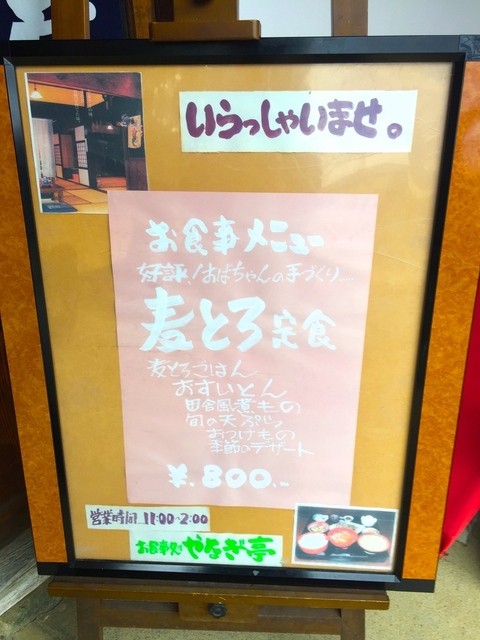 いらっしゃいませ。
お食事メニュー
好評！おばちゃんの手づくり
麦とろ定食
麦とろごはん
おすいとん
田舎風煮もの
旬の天ぷら
おつけもの
季節のデザート
¥.800.-
営業時間 11:00~2:00
お食事処 やなぎ亭